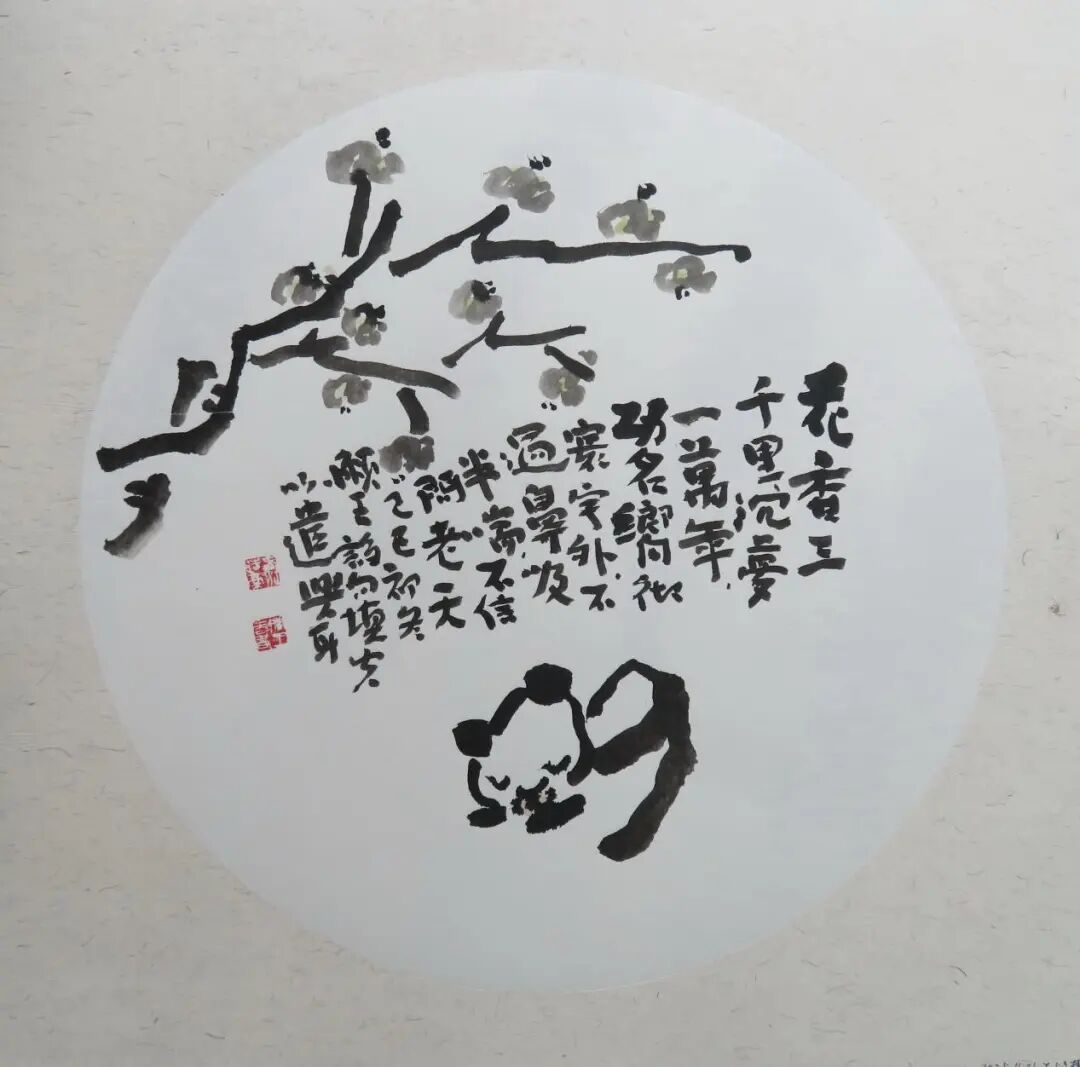 花香三
千里沉夢
一萬年
功名嚮
寰宇外不
過鼻吸
半不信
問老天
乙巳初冬
句填
以遣興耳